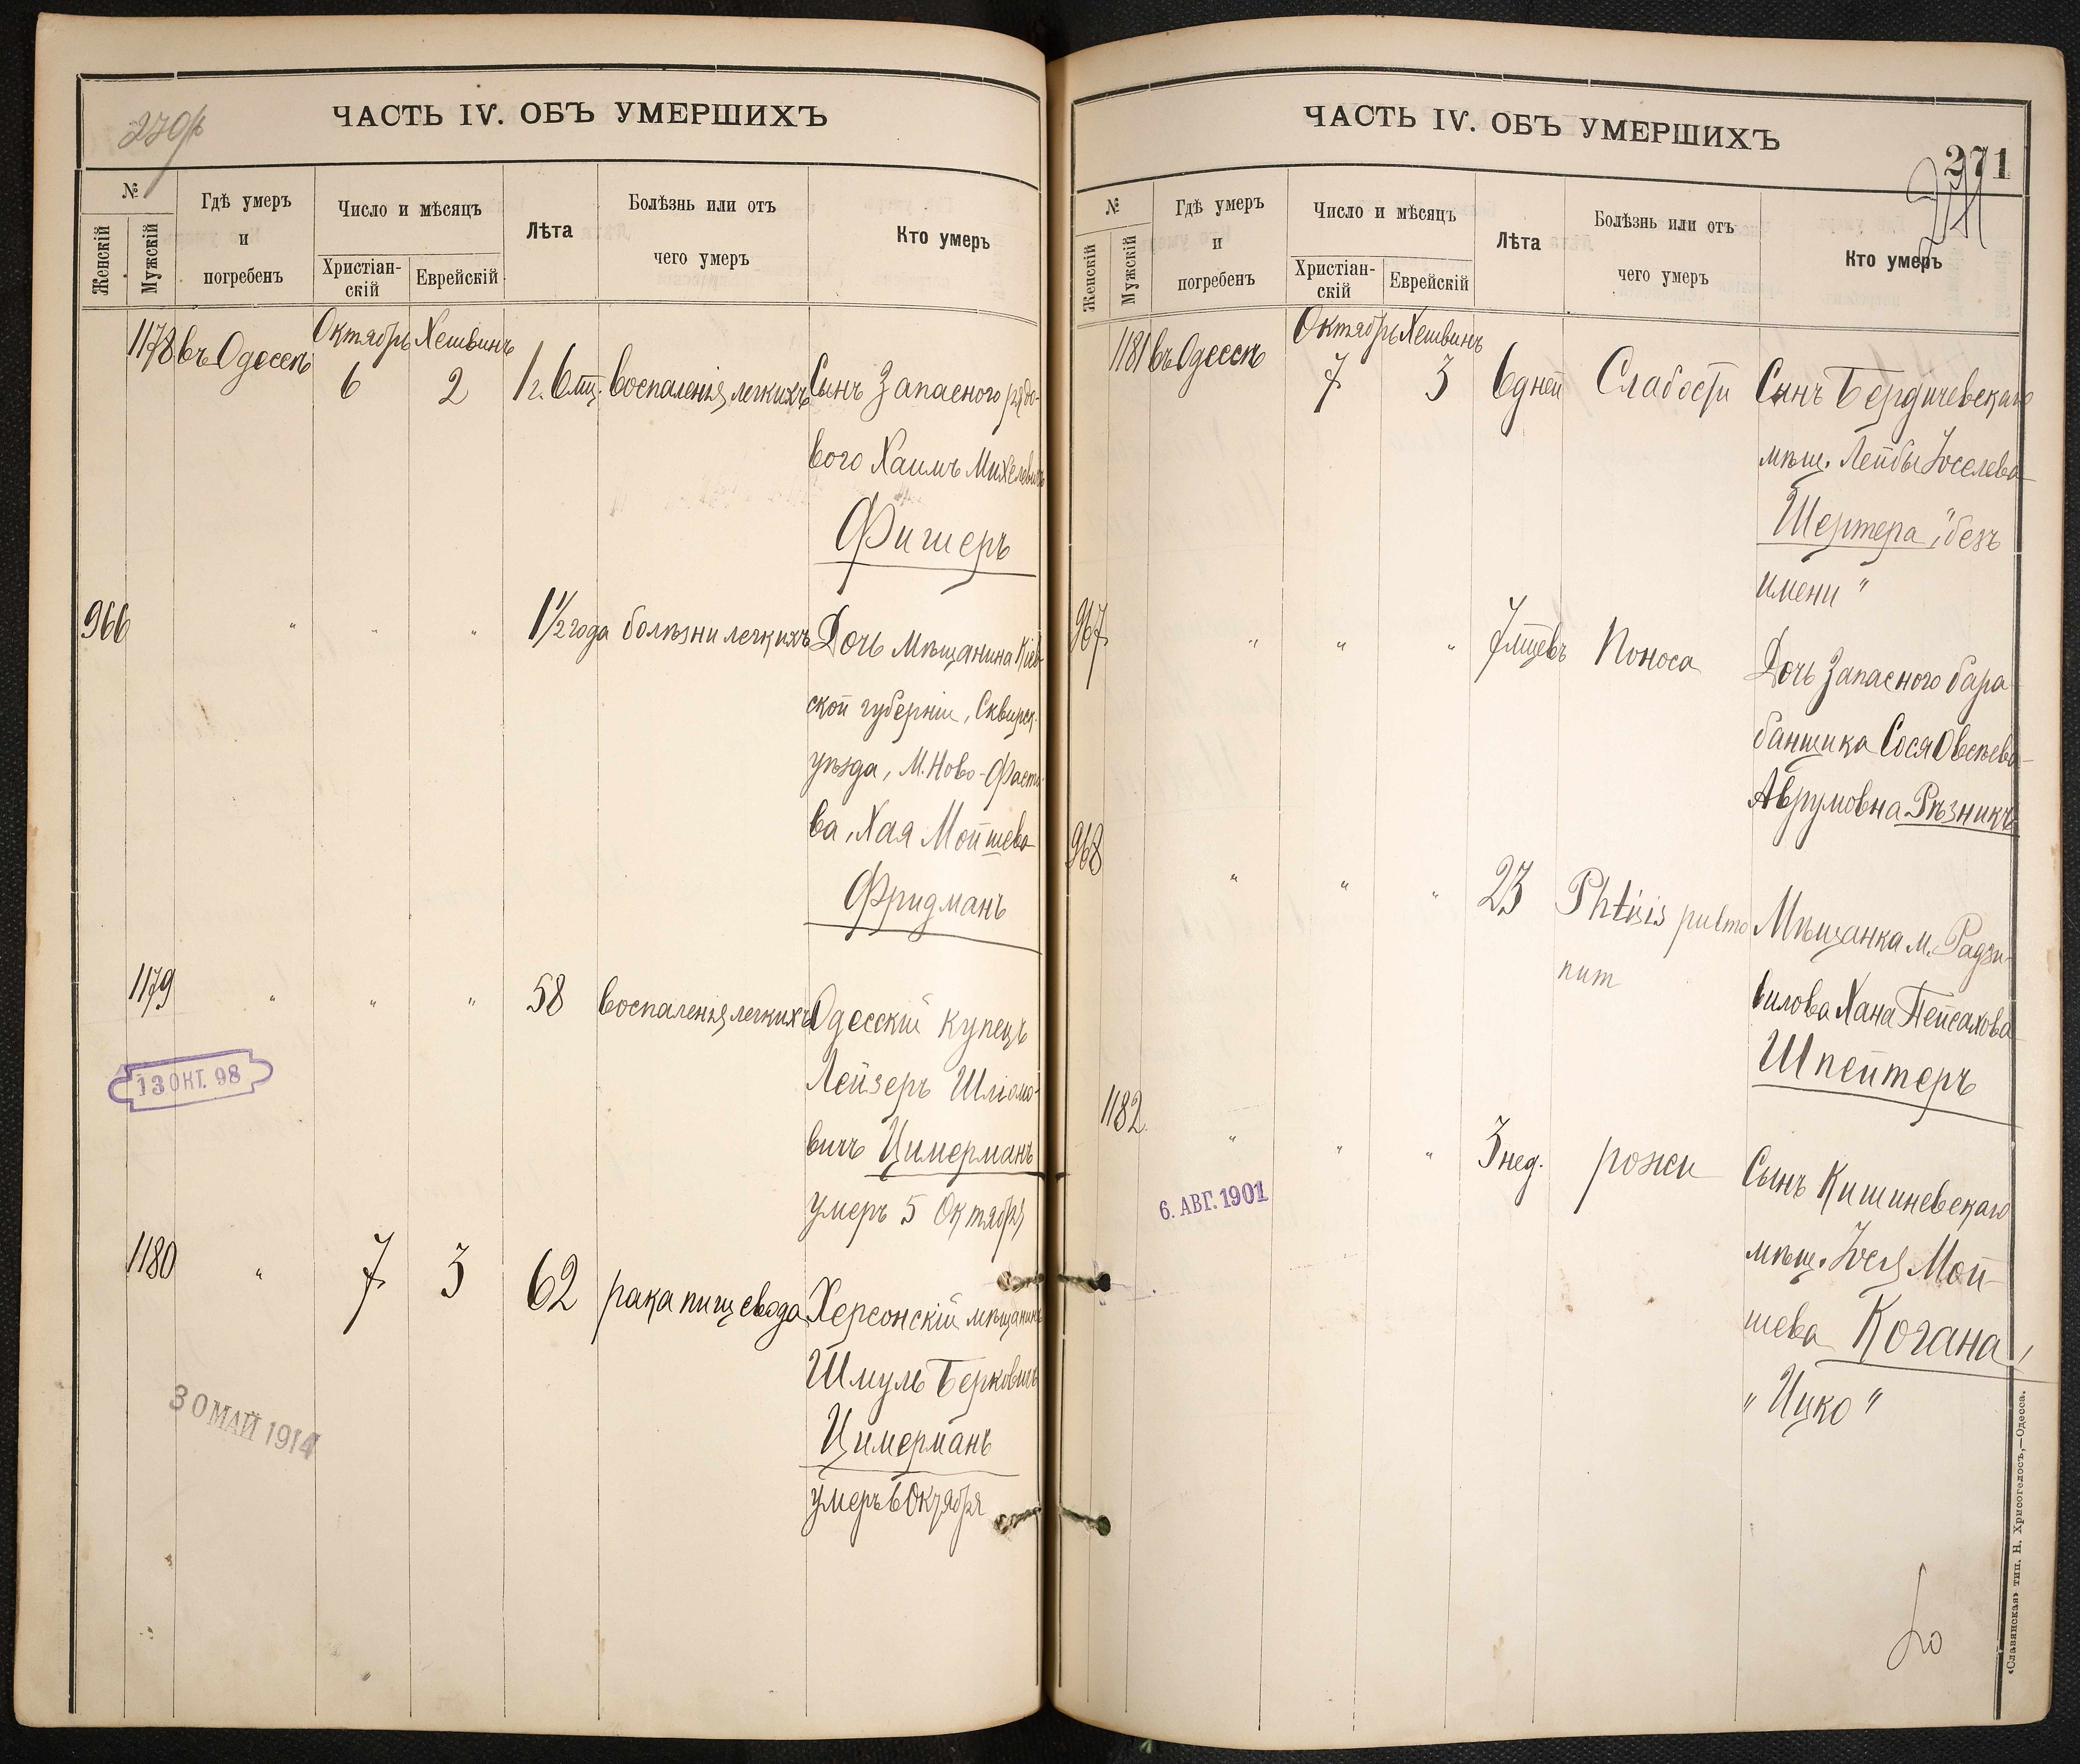 270
ЧАСТЬ IV. ОБЪ УМЕРШИХЪ
№
Женскій
Мужскій
Гдѣ умеръ
и
погребенъ
Число и мѣсяцъ
Христіан-
скій
Еврейскій
Лѣта
Болѣзнь или отъ
чего умеръ
Кто умеръ
Октябрь Хешвинъ
1178 въ Одессѣ 6 2 1 г. 6 мц. воспаленія легкихъ Сынъ Запасного рядо-
вого Хаимъ Михелевичъ
Фишеръ
966 " " " 1 1/2 года болѣзни легкихъ Дочь мѣщанина Кіев-
ской губерніи, Сквирск.
уѣзда, м. Ново-Фасто-
ва, Хая Мойшева
Фридманъ
1179 " " " 58 воспаленія легкихъ Одесскій купецъ
Лейзеръ Шліомо-
вичъ Цимерманъ
умеръ 5 Октября
13 ОКТ. 98
1180 " 7 3 62 рака пищевода Херсонскій мѣщанинъ
Шмуль Берковичъ
Цимерманъ
умеръ 6 Октября
30 МАЙ 1914
ЧАСТЬ IV. ОБЪ УМЕРШИХЪ
271
271
№
Женскій
Мужскій
Гдѣ умеръ
и
погребенъ
Число и мѣсяцъ
Христіан-
скій
Еврейскій
Лѣта
Болѣзнь или отъ
чего умеръ
Кто умеръ
Октябрь Хешвинъ
1181 въ Одессѣ 7 3 6 дней Слабости Сынъ Бердичевскаго
мѣщ. Лейбы Іоселева
Шертера "безъ
имени"
967 " " " 7 мцевъ Поноса Дочь Запасного бара-
банщика Сося Овсѣева-
Аврумовна Рѣзникъ
968 " " " 23 Phtisis pulmo Мѣщанка м. Радзи-
num вилова Хана Пейсахова
Шпейтеръ
1182 " " " 3 нед. рожи Сынъ Кишиневскаго
мѣщ. Іося Мой-
шева Когана,
"Ицко"
6. АВГ. 1901
«Славянская» тип. Н. Хрисогелосъ,—Одесса.